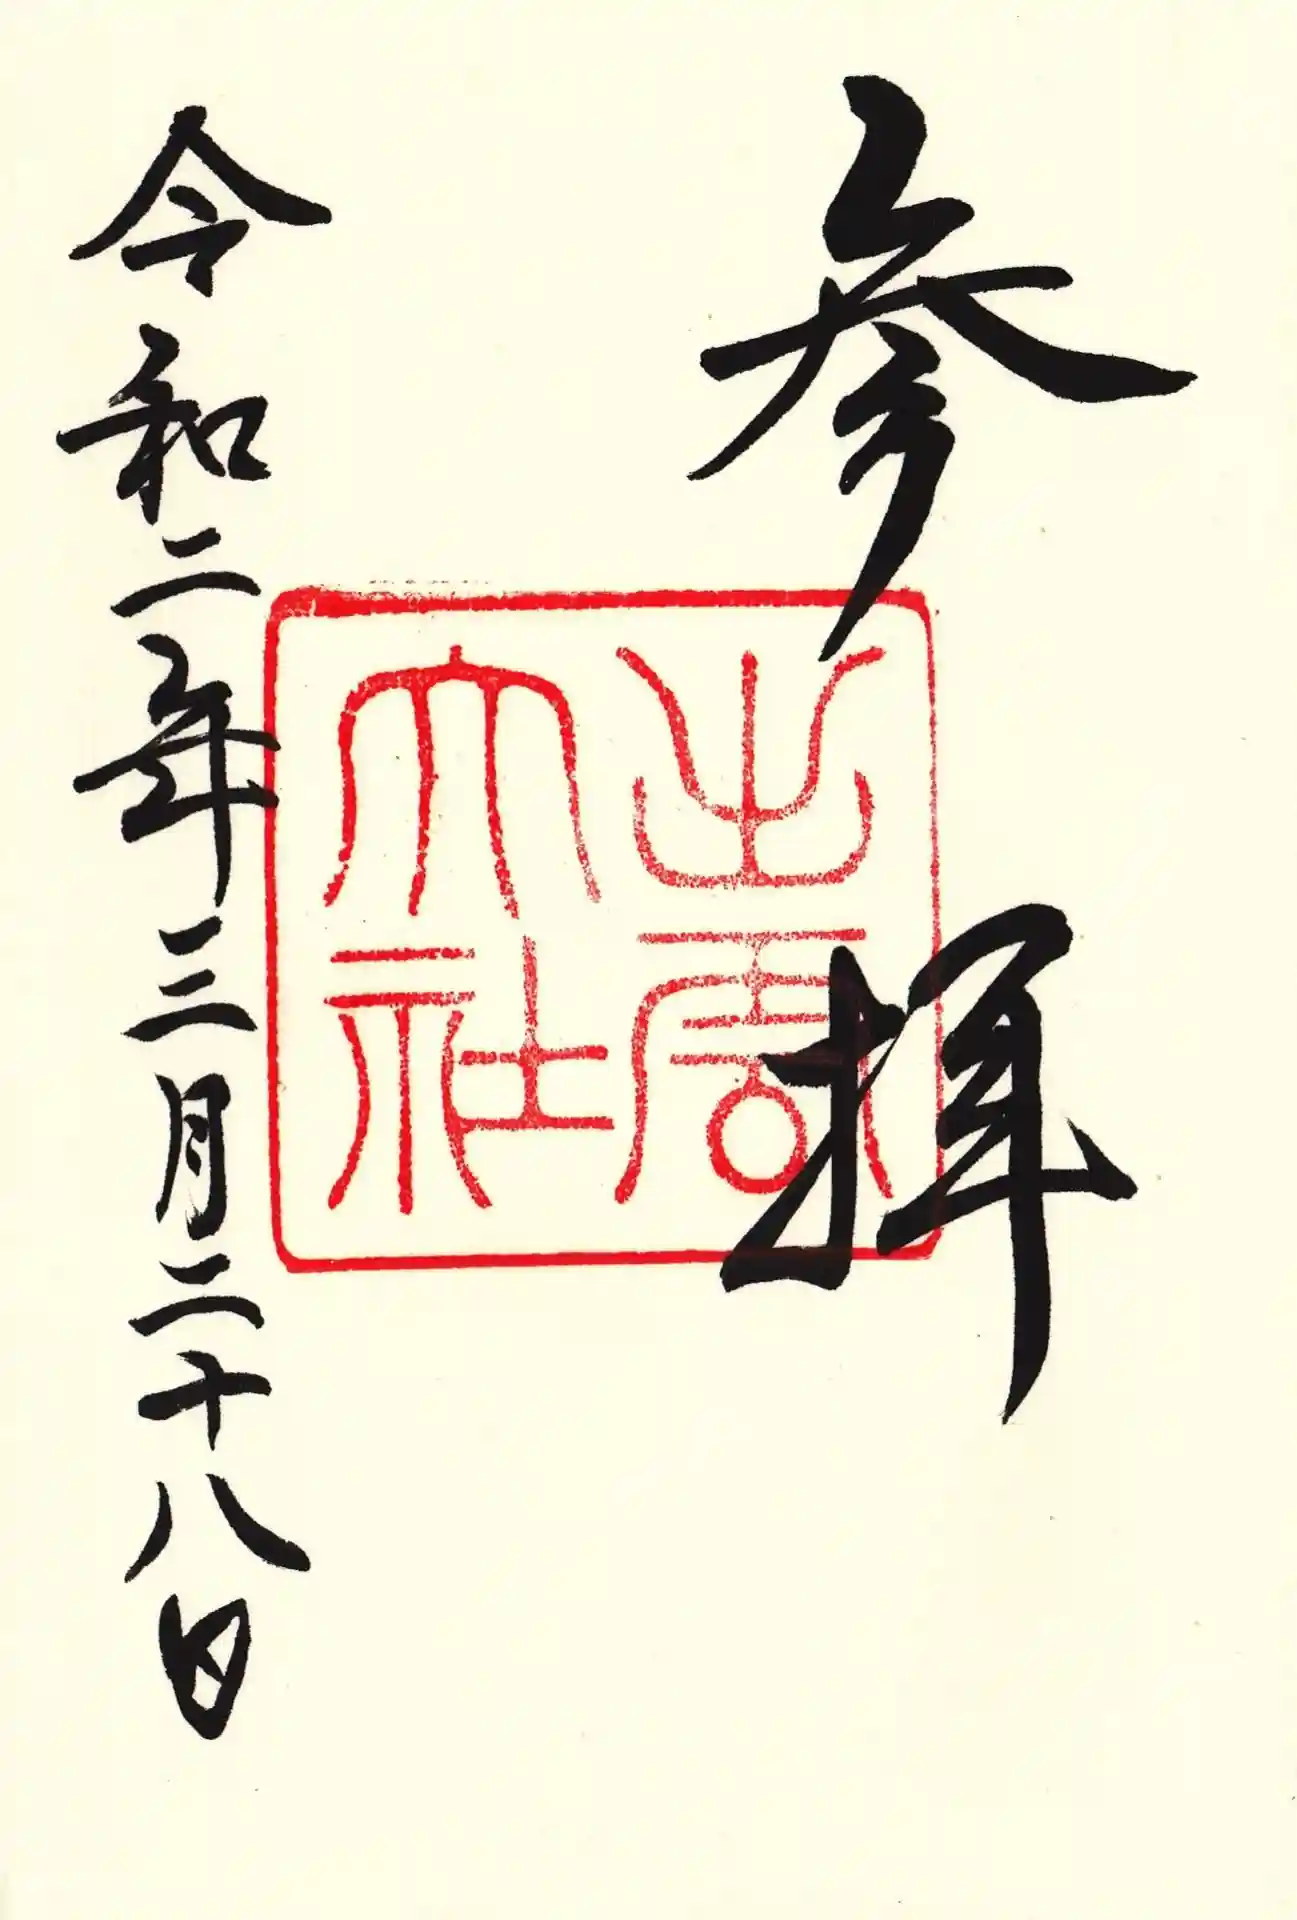 参拝
出雲
大社
令和二年三月二十八日